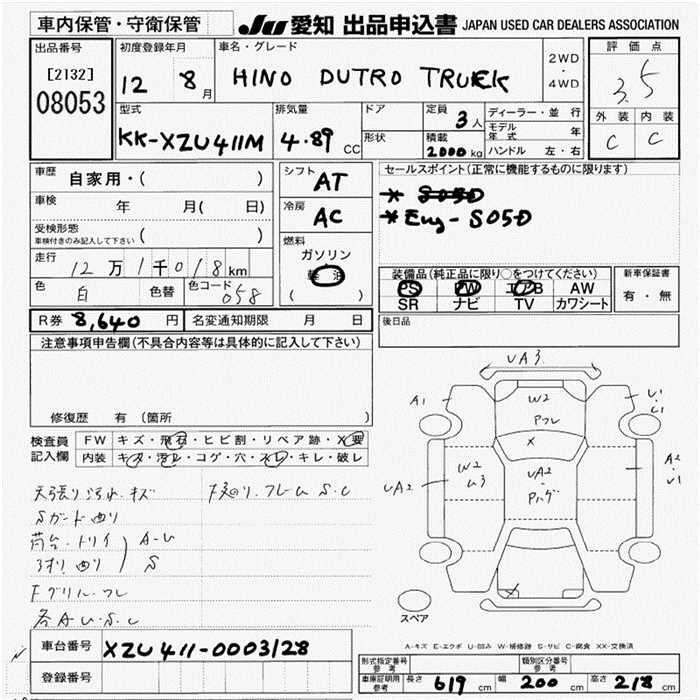 車内保管・守衛保管 JU 愛知 出品申込書 JAPAN USED CAR DEALERS ASSOCIATION
出品番号
[2132]
08053
初度登録年月
12 8月
車名・グレード
HINO DUTRO TRUCK
2WD
・
4WD
評価点
3.5
外装 内装
C C
型式
KK-XZU411M
排気量
4.89 CC
ドア
形状
定員 3人
積載 2000 kg
ディーラー・並行
モデル年式 年
ハンドル 左・右
車歴 自家用・( )
車検 年 月( 日)
受検形態
車検付きのみ記入して下さい ( )
走行 12万1千018km
色 白 色替 色コード 058
シフト AT
冷房 AC
燃料
ガソリン
( )
セールスポイント(正常に機能するものに限ります)
* S05D
* Eng-S05D
装備品(純正品に限り○をつけてください)
PS PW エアB AW
SR ナビ TV カワシート
新車保証書
有・無
R券 8,640円 名変通知期限 月 日
後日品
注意事項申告欄(不具合内容等は具体的に記入して下さい)
修復歴 有(箇所 )
検査員
記入欄
FW キズ・飛石・ヒビ割・リペア跡・X要
内装 キズ・汚レ・コゲ・穴・スレ・キレ・破レ
天張り汚れ.キズ
Sガード曲り
荷台.トリイ A-U
アオリ曲り S
Fグリル.フレ
各A.U.S.C
F廻り.フレーム S.C
UA3
A1
W2
Pフレ
U1
C1
X
UA2
W2
U3
UA2
Pハゲ
A2
U1
X
スペア
A-キズ E-エクボ U-凹み W-補修跡 S-サビ C-腐食 XX-交換済
車台番号 XZU411-0003128
登録番号
形式指定番号
参考
類別区分番号
参考
車庫証明用
参考
長さ 619 cm 幅 200 cm 高さ 218 cm